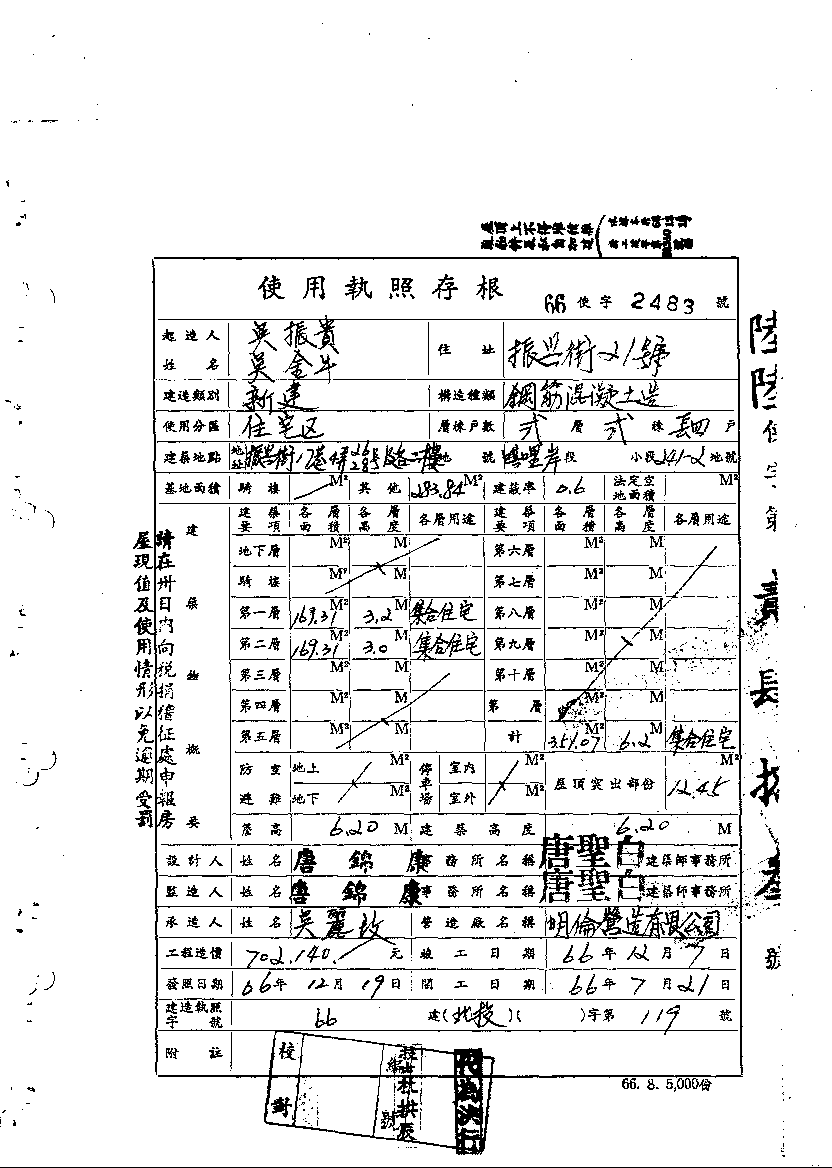 使用執照存根
66 使字 2483 號
起造人姓名 吳振貴 吳金牛 住址 振興街21號
建造類別 新建 構造種類 鋼筋混凝土造
使用分區 住宅区 層棟戶數 弍層 弍棟 戶
建築地點 地址 振興街 地號 段 小段 241-2 地號
基地面積 騎樓 M² 其他 283.84 M² 建蔽率 0.6 法定空地面積 M²
建築要項 各層面積 各層高度 各層用途 建築要項 各層面積 各層高度 各層用途
建築物概要
地下層 M² M 第六層 M² M
騎樓 M² M 第七層 M² M
第一層 169.31 M² 3.2 M 集合住宅 第八層 M² M
第二層 169.31 M² 3.0 M 集合住宅 第九層 M² M
第三層 M² M 第十層 M² M
第四層 M² M 第 層 M² M
第五層 M² M 計 351.07 M² 6.2 M 集合住宅
防空避難 地上 M² 地下 M² 停車場 室內 M² 室外 M² 屋頂突出部份 12.45 M²
簷高 6.20 M 建築高度 6.20 M
設計人 姓名 唐錦康 事務所名稱 唐聖白建築師事務所
監造人 姓名 唐錦康 事務所名稱 唐聖白建築師事務所
承造人 姓名 吳麗 營造廠名稱 明倫營造有限公司
工程造價 702.140. 元 竣工日期 66年12月7日
發照日期 66年12月19日 開工日期 66年7月21日
建造執照字號 66 建(北投)( )字第 119 號
附註
校對
66. 8. 5,000份
請在卅日內向稅捐稽征處申報房
屋現值及使用情形以免逾期受罰
陸陸使字第
號